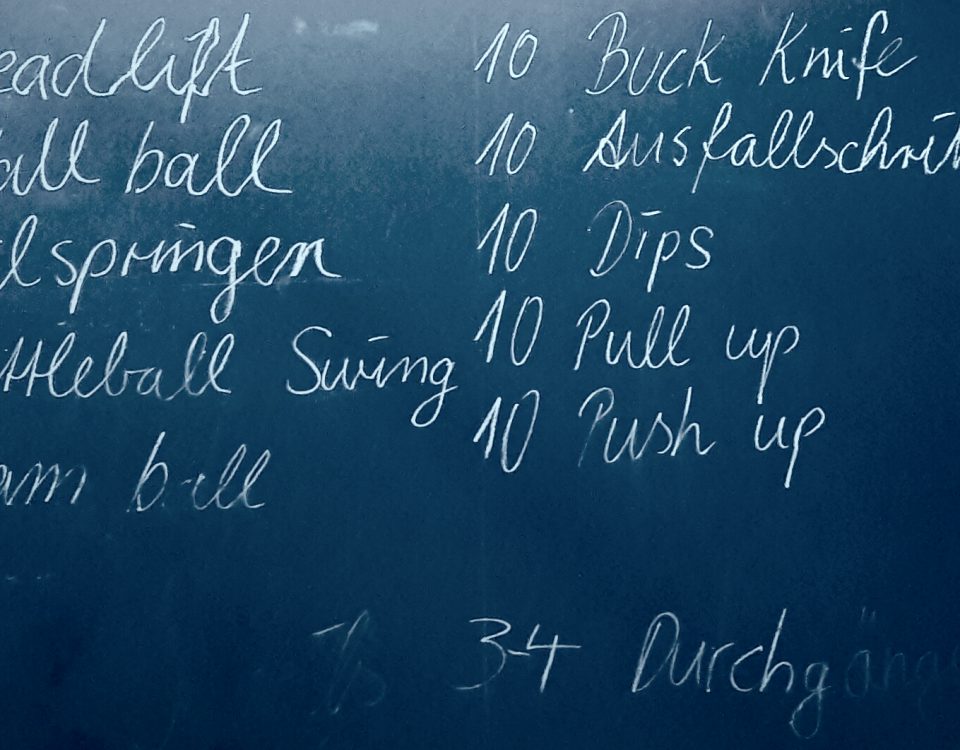 eadlift 10 Buck Knife
all ball 10 Ausfallschrit
lspringen 10 Dips
ttleball Swing 10 Pull up
am ball 10 Push up
3-4 Durchgäng